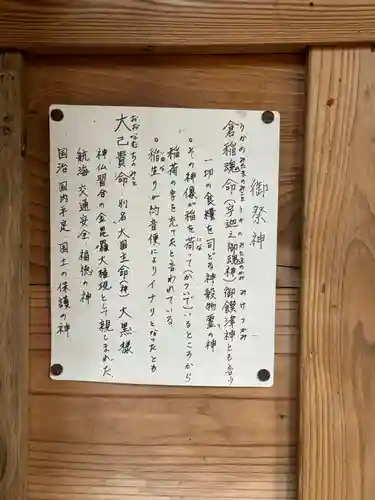 御祭神
うかのみたまのみこと うかのみたまのかみ みけつかみ
倉稲魂命(宇迦之御魂神 御饌津神とも言う
一切の食糧を司どる神 穀物霊の神
。その神像が稲を荷って(かついで)いるところから
稲荷の字を充てたと言われている
。稲生りが約音便によりイナリとなったとも
おおなむちのみこと
大己貴命 別名 大国主命(神) 大黒様
神仏習合の金毘羅大権現として親しまれた
航海 交通安全 福徳の神
国治 国内平定 国土の保護の神